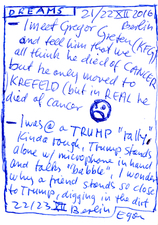 DREAMS 21/22 XII 2016
Berlin
— I meet Gregor Greten (KFG)
and tell him that we
all think he died of CANCER
but he only moved to
KREFELD (but in REAL he
died of cancer
— I was @ a TRUMP "rally",
Kinda rough, Trump stands
alone w/ microphone in hand
and talks "babble", I wonder
why a friend stands so close
to Trump, digging in the dirt
22/23 XII Berlin / Egon